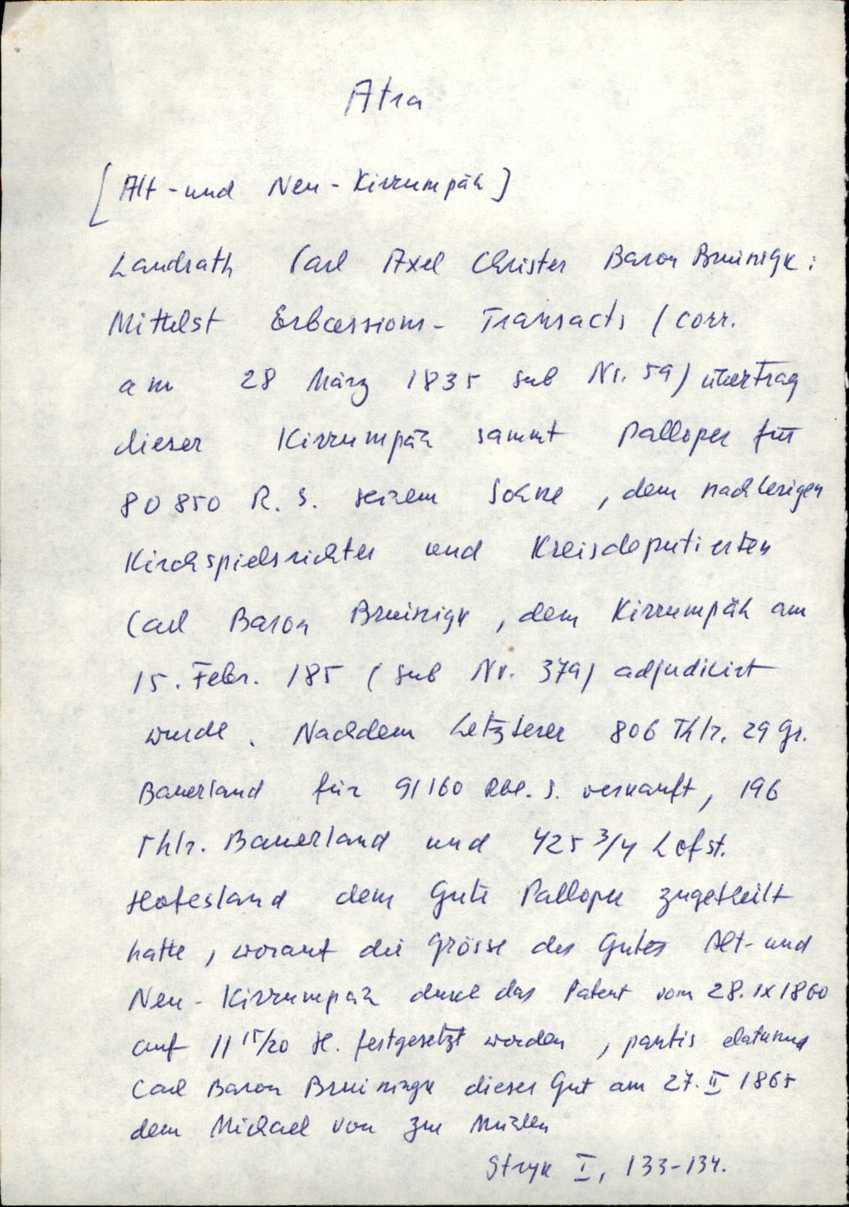 Atra
[Alt-und Neu-Kirrumpäh]
Landrath Carl Axel Christer Baron Bruinigk:
Mittelst Erbcessions-Transacts (corr.
am 28 März 1835 sub Nr. 59) übertrug
dieser Kirrumpäh sammt Palloper für
80850 R. S. seinem Sohne, dem nachherigen
Kirchspielsrichter und Kreisdeputierten
Carl Baron Bruinigk, dem Kirrumpäh am
15. Febr. 185 (sub Nr. 379) adjudicirt
wurde. Nachdem Letzterer 806 Thlr. 29 Gr.
Bauerland für 91160 Rbl. S. verkauft, 196
Thlr. Bauerland und 425 3/4 Lofst.
Hofesland dem Gute Palloper zugetheilt
hatte, worauf die Grösse des Gutes Alt-und
Neu-Kirrumpäh durch das Patent vom 28. IX 1860
auf 11 15/20 H. festgesetzt worden,
Carl Baron Bruiningk dieses Gut am 27. II 1865
dem Michael von zur Mühlen
Stryk I, 133-134.